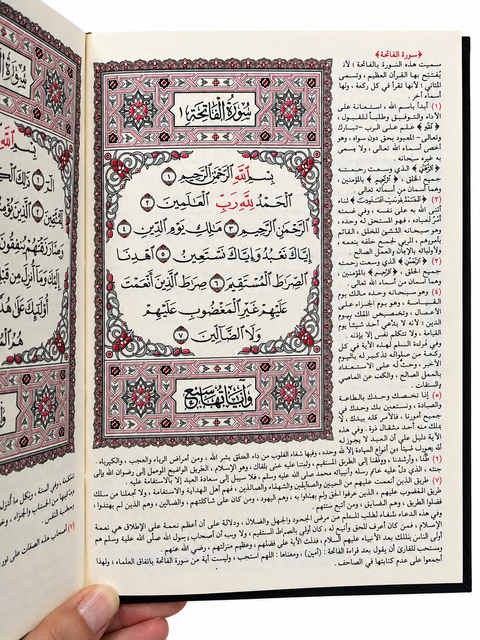 سورة الفاتحة ١
بِسْمِ اللَّهِ الرَّحْمَٰنِ الرَّحِيمِ ١
الْحَمْدُ لِلَّهِ رَبِّ الْعَالَمِينَ ٢
الرَّحْمَٰنِ الرَّحِيمِ ٣ مَالِكِ يَوْمِ الدِّينِ ٤
إِيَّاكَ نَعْبُدُ وَإِيَّاكَ نَسْتَعِينُ ٥ اهْدِنَا
الصِّرَاطَ الْمُسْتَقِيمَ ٦ صِرَاطَ الَّذِينَ أَنْعَمْتَ
عَلَيْهِمْ غَيْرِ الْمَغْضُوبِ عَلَيْهِمْ
وَلَا الضَّالِّينَ ٧
وآياتها سبع
﴿سورة الفاتحة﴾
سميت هذه السورة بالفاتحة ؛ لأنه
يُفتتح بها القرآن العظيم، وتسمى
المثاني ؛ لأنها تقرأ في كل ركعة ، ولها
أسماء أخر.
(١) أبدأ باسم الله ، استعانة على
الأداء والتوفيق وطلباً للقبول ،
﴿اللَّهِ﴾ علم على الرب -تبارك
وتعالى- المعبود بحق دون سواه ، وهو
أخص أسماء الله تعالى ، ولا يسمى
به غيره سبحانه .
﴿الرَّحْمَٰنِ﴾ الذي وسعت رحمته
جميع الخلق ، ﴿الرَّحِيمِ﴾ بالمؤمنين ،
وهما اسمان من أسمائه تعالى .
(٢) ﴿الْحَمْدُ لِلَّهِ رَبِّ الْعَالَمِينَ﴾ ثناء
أثنى الله به على نفسه ، وفي ضمنه
أمرٌ لعباده أن يحمدوه ، فهو المستحق له وحده ،
وهو سبحانه المنشئ للخلق ، القائم
بأمورهم ، المربي لجميع خلقه بنعمه ،
ولأوليائه بالإيمان والعمل الصالح .
(٣) ﴿الرَّحْمَٰنِ﴾ الذي وسعت رحمته
جميع الخلق ، ﴿الرَّحِيمِ﴾ بالمؤمنين ،
وهما اسمان من أسماء الله تعالى
(٤) وهو سبحانه وحده مالك يوم
القيامة ، وهو يوم الجزاء على
الأعمال ، وتخصيص الملك بيوم
الدين ؛ لأنه لا يدَّعي أحد شيئاً يوم
القيامة ، ولا تتكلم نفس إلا بإذنه .
وفي قراءة المسلم لهذه الآية في كل
ركعة من صلواته تذكير له باليوم
الآخر ، وحثٌّ له على الاستعداد
بالعمل الصالح ، والكف عن المعاصي
والسيئات .
(٥) إنا نخصك وحدك بالطاعة
والعبادة ، ونستعين بك وحدك في
جميع أمورنا ، فالأمر كله بيدك ، لا
يملك منه أحد مثقال ذرة . وفي هذه
الآية دليل على أن العبد لا يجوز له
أن يصرف شيئاً من أنواع العبادة إلا لله وحده ، وفيها شفاء القلوب من داء التعلق بغير الله ، ومن أمراض الرياء والعجب ، والكبرياء .
(٦) دُلَّنا ، وأرشدنا ، ووفقنا إلى الطريق المستقيم ، وثبتنا عليه حتى نلقاك ، وهو الإسلام ، الطريق الواضح الموصل إلى رضوان الله وإلى
جنته ، الذي دلَّ عليه خاتم رسله وأنبيائه محمد صلى الله عليه وسلم ، فلا سبيل إلى سعادة العبد إلا بالاستقامة عليه .
(٧) طريق الذين أنعمت عليهم من النبيين والصديقين والشهداء والصالحين ، فهم أهل الهداية والاستقامة ، ولا تجعلنا ممن سلك
طريق المغضوب عليهم ، الذين عرفوا الحق ولم يعملوا به ، وهم اليهود ، ومن كان على شاكلتهم ، والضالين ، وهم الذين لم يهتدوا
فضلوا الطريق ، وهم النصارى ، ومن اتبع سنتهم .
وفي هذه الدعاء شفاء لقلب المسلم من مرض الجحود والجهل والضلال ، ودلالة على أن أعظم نعمة على الإطلاق هي نعمة
الإسلام ، فمن كان أعرف للحق وأتبع له ، كان أولى بالصراط المستقيم ، ولا ريب أن أصحاب رسول الله صلى الله عليه وسلم هم
أولى الناس بذلك بعد الأنبياء عليهم السلام ، فدلت الآية على فضلهم ، وعظيم منزلتهم ، رضي الله عنهم .
ومستحب للقارئ أن يقول بعد قراءة الفاتحة : (آمين) ، ومعناها : اللهم استجب ، وليست آية من سورة الفاتحة باتفاق العلماء ، ولهذا
أجمعوا على عدم كتابتها في المصاحف .